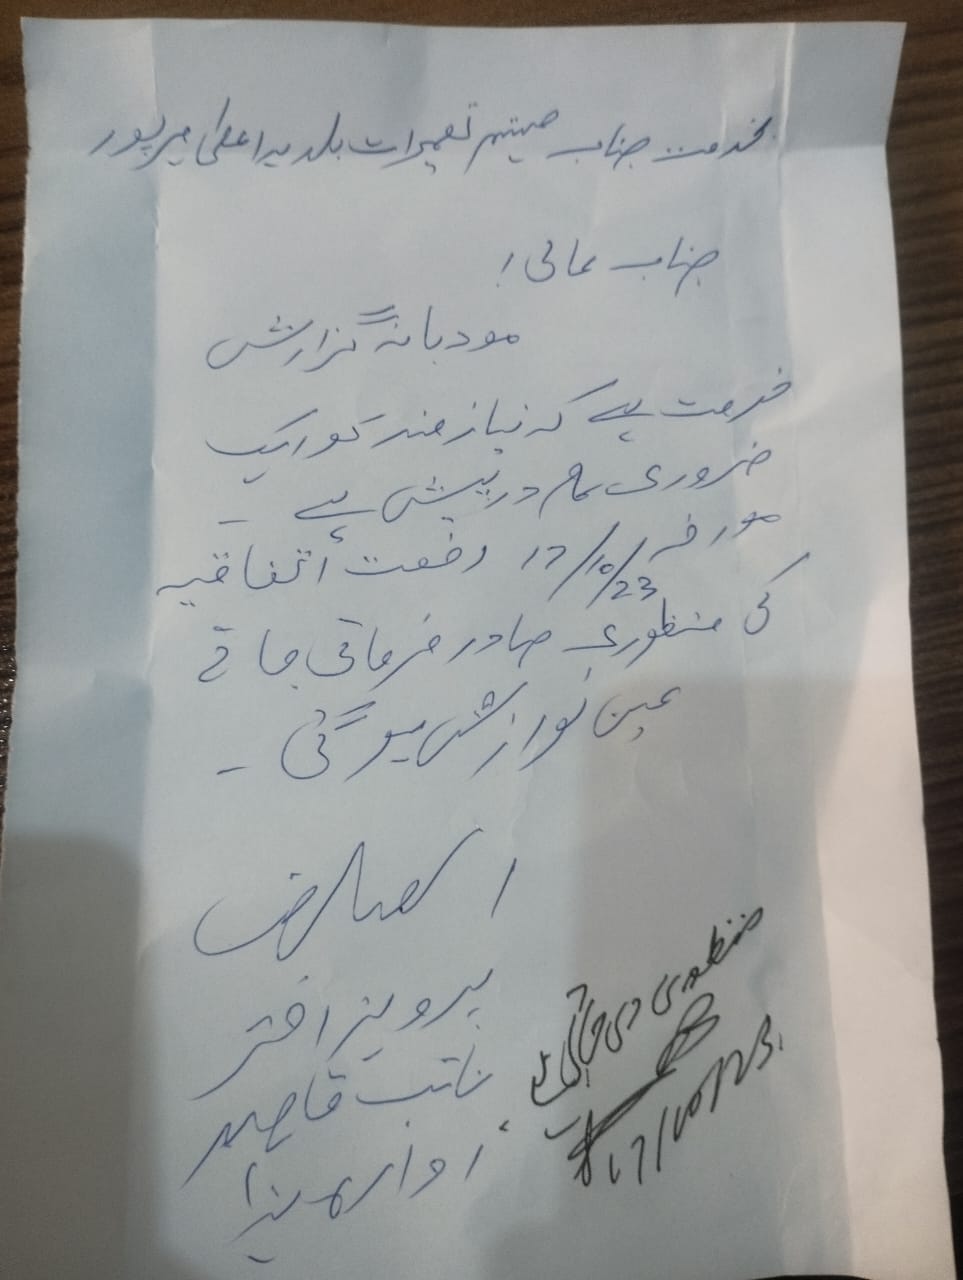 بخدمت جناب مہتمم تعمیرات بلدیہ اعلیٰ میرپور
جناب عالی!
مودبانہ گزارش
خدمت ہے کہ نیاز مند کو ایک
ضروری کام درپیش ہے ۔
مورخہ 17/10/23 رخصت اتفاقیہ
کی منظوری صادر فرمائی جائے
عین نوازش ہو گی ۔
العارض
پرویز اختر
نائب قاصد
ادارہ ہذا
منظوری دی جاتی ہے
17/10/023